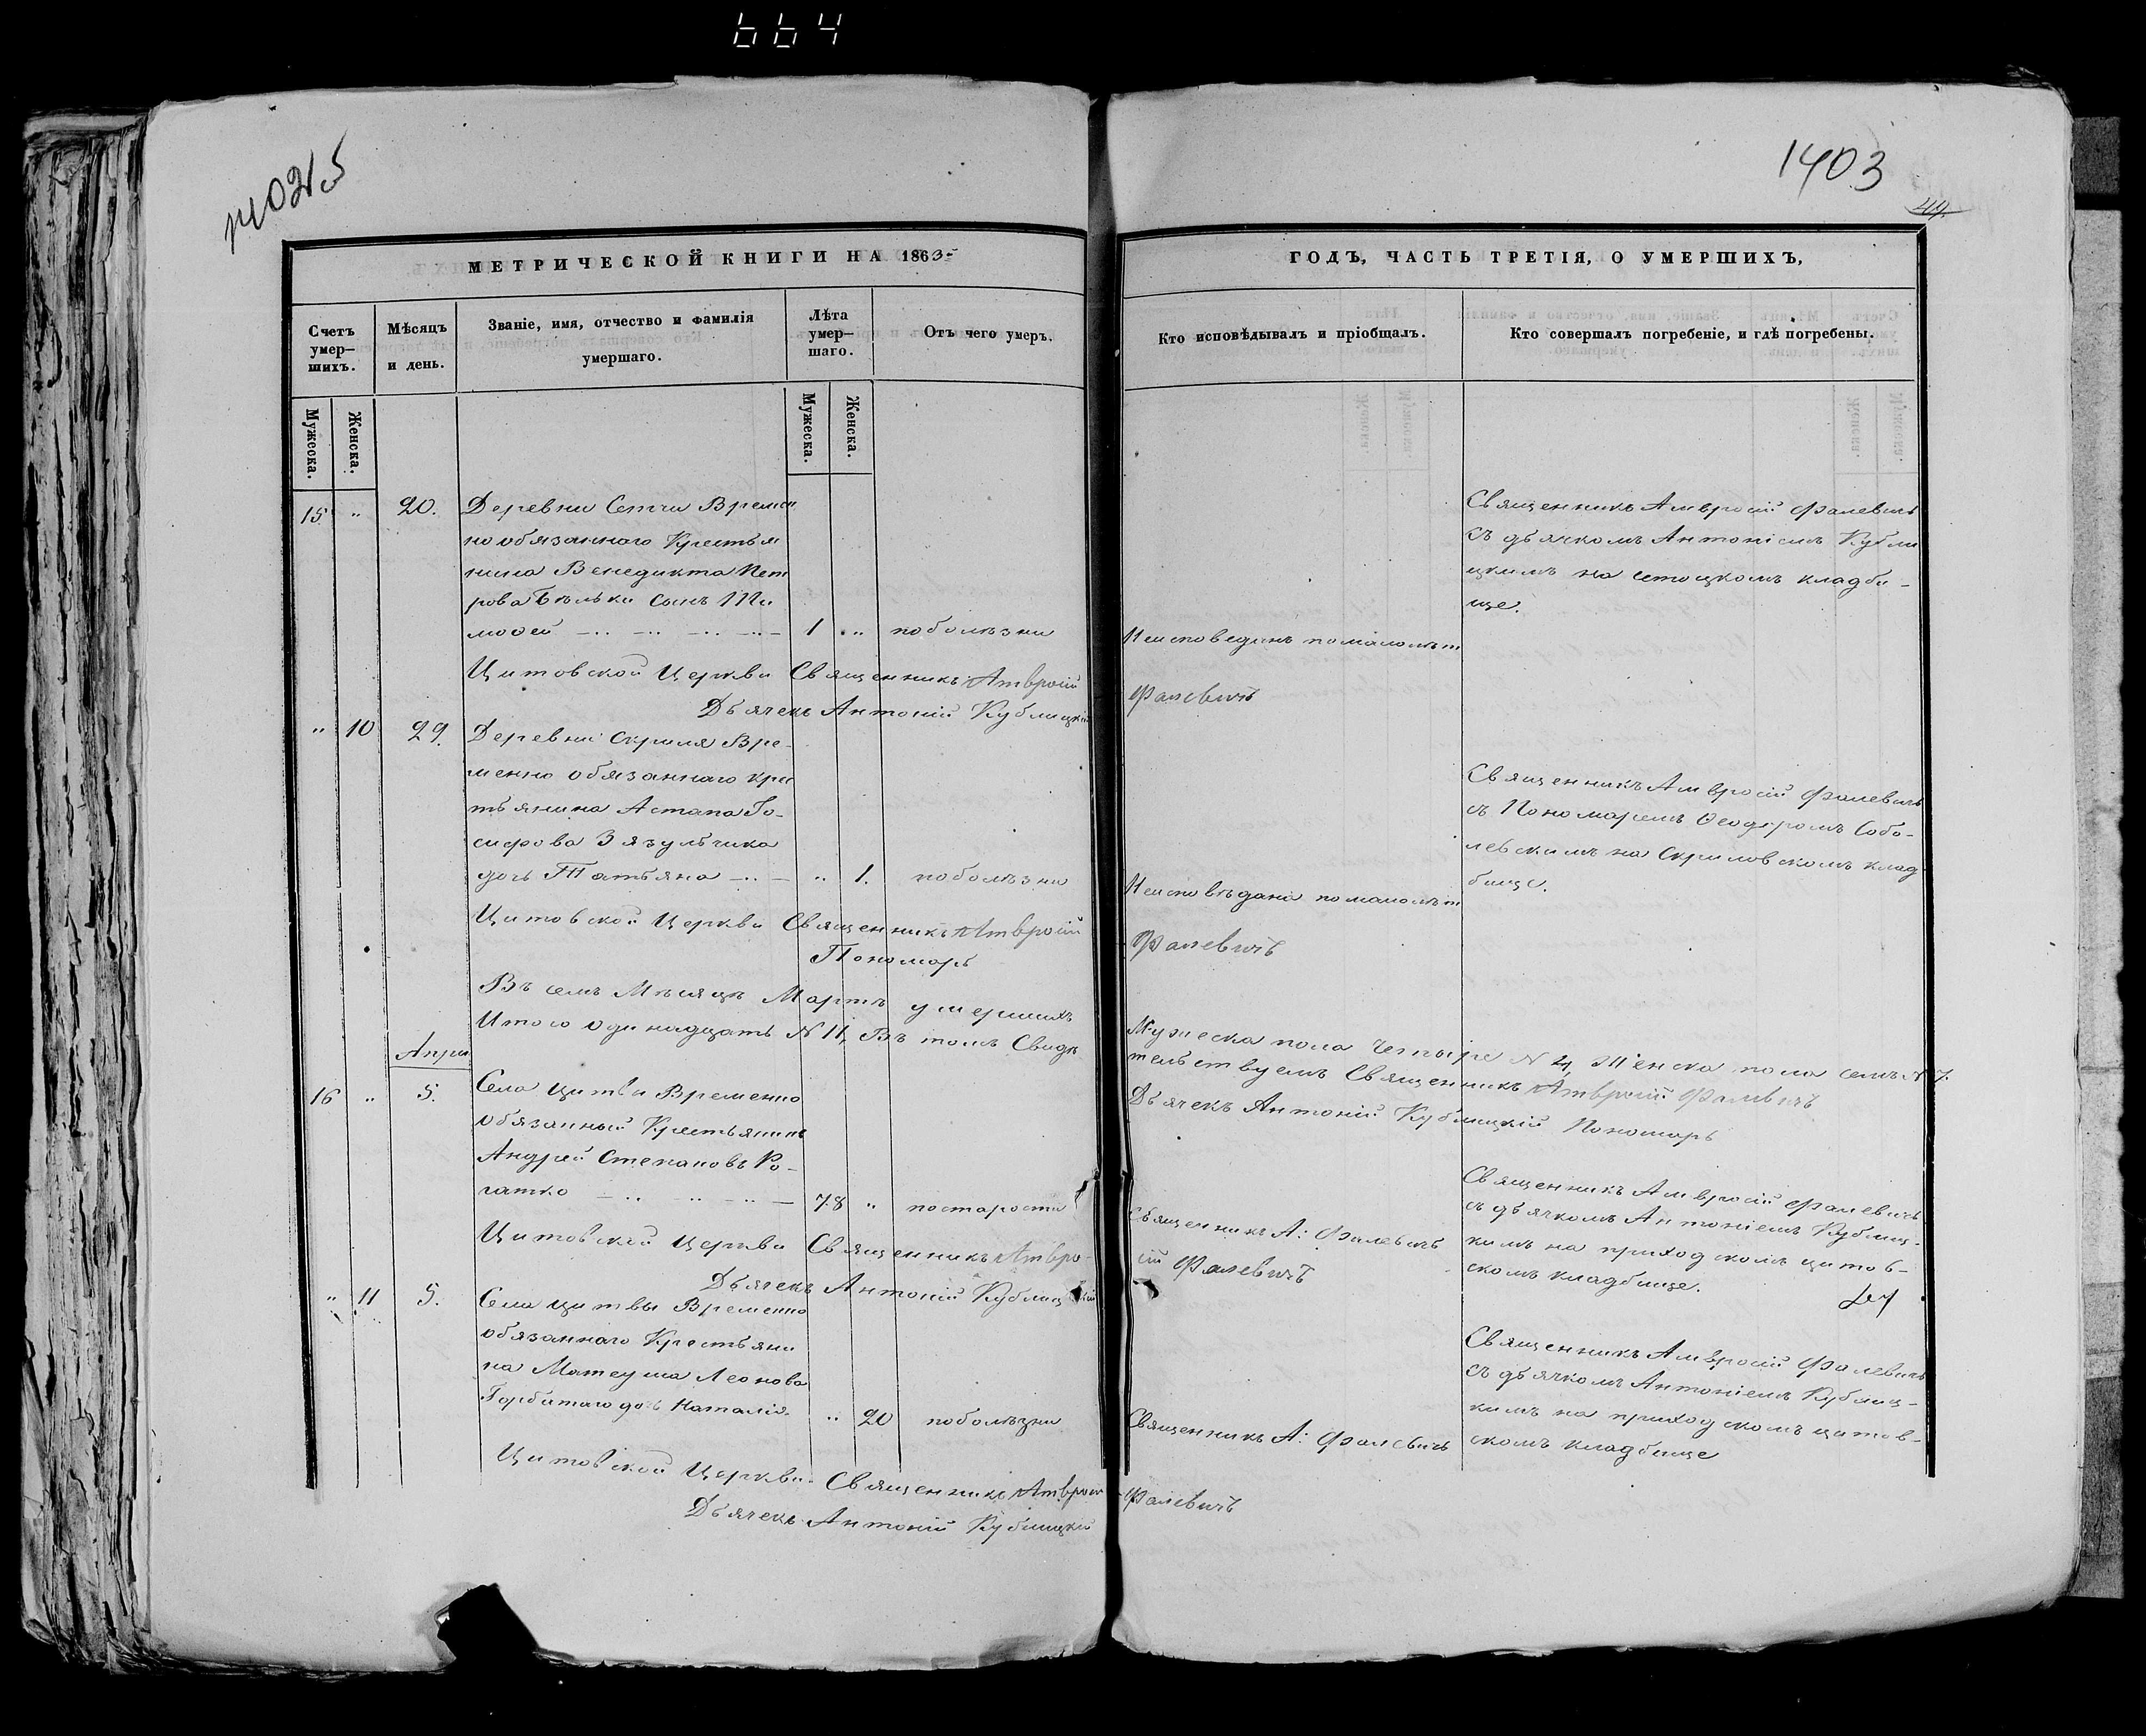 664
1403
44.
МЕТРИЧЕСКОЙ КНИГИ НА 1863
ГОДЪ, ЧАСТЬ ТРЕТІЯ, О УМЕРШИХЪ,
Счетъ умер-шихъ.
Мѣсяцъ и день.
Званіе, имя, отчество и фамилія умершаго.
Лѣта умер-шаго.
Отъ чего умеръ.
Кто исповѣдывалъ и пріобщалъ.
Кто совершалъ погребеніе, и гдѣ погребены.
Мужеска.
Женска.
Мужеска.
Женска.
15 " 20.
Деревни Сетчи Времен
но обязаннаго Крестья
нина Венедикта Пет
рова сынъ Ти
моѳей 1 " по болѣзни
Неисповеданъ по малолѣт
Священникъ Амвросій Фалевичъ
съ дьячкомъ Антоніемъ Кубли
цкимъ на сетоцкомъ кладби-
ще.
Цитовской Церкви Священникъ Амвросій Фалевичъ
Дьячекъ Антоній Кублицкій
" 10 29.
Деревни Скриля Вре-
менно обязаннаго крес
тьянина Астапа Іо-
сифова Зязульчика
дочь Татьяна " 1. по болѣзни
Неисповѣдана по малолѣт
Священникъ Амвросій Фалевичъ
съ Пономаремъ Ѳеодоромъ Собо-
левскимъ на Скриловскомъ клад
бище.
Цитовской Церкви Священникъ Амвросій Фалевичъ
Пономарь
Въ семъ Мѣсяцѣ Мартѣ умершихъ Мужеска пола Четыре N 4, Женска пола семь N 7.
Итого одинадцать N 11, Въ томъ Свидѣтельствуемъ Священникъ Амвросій Фалевичъ
Дьячекъ Антоній Кублицкій Пономарь
Апрѣ
16 " 5.
Села Цитвы Временно
обязанный Крестьянинъ
Андрей Степановъ Ро-
гатко 78 " по старости
Священникъ А: Фалевичъ
Священникъ Амвросій Фалевичъ
съ дьячкомъ Антоніемъ Кублиц-
кимъ на приходскомъ цитов-
скомъ кладбище.
Цитовской Церкви Священникъ Амвро-
сій Фалевичъ
Дьячекъ Антоній Кублицкій
" 11 5.
Села Цитвы Временно
обязаннаго Крестьяни
на Матеуша Леонова
Горбатаго дочь Наталія. " 20 по болѣзни
Священникъ А: Фалевичъ
Священникъ Амвросій Фалевичъ
съ дьячкомъ Антоніемъ Кублиц-
кимъ на приходскомъ цитов-
скомъ кладбище
Цитовской Церкви Священникъ Амвросій Фалевичъ
Дьячекъ Антоній Кублицкій